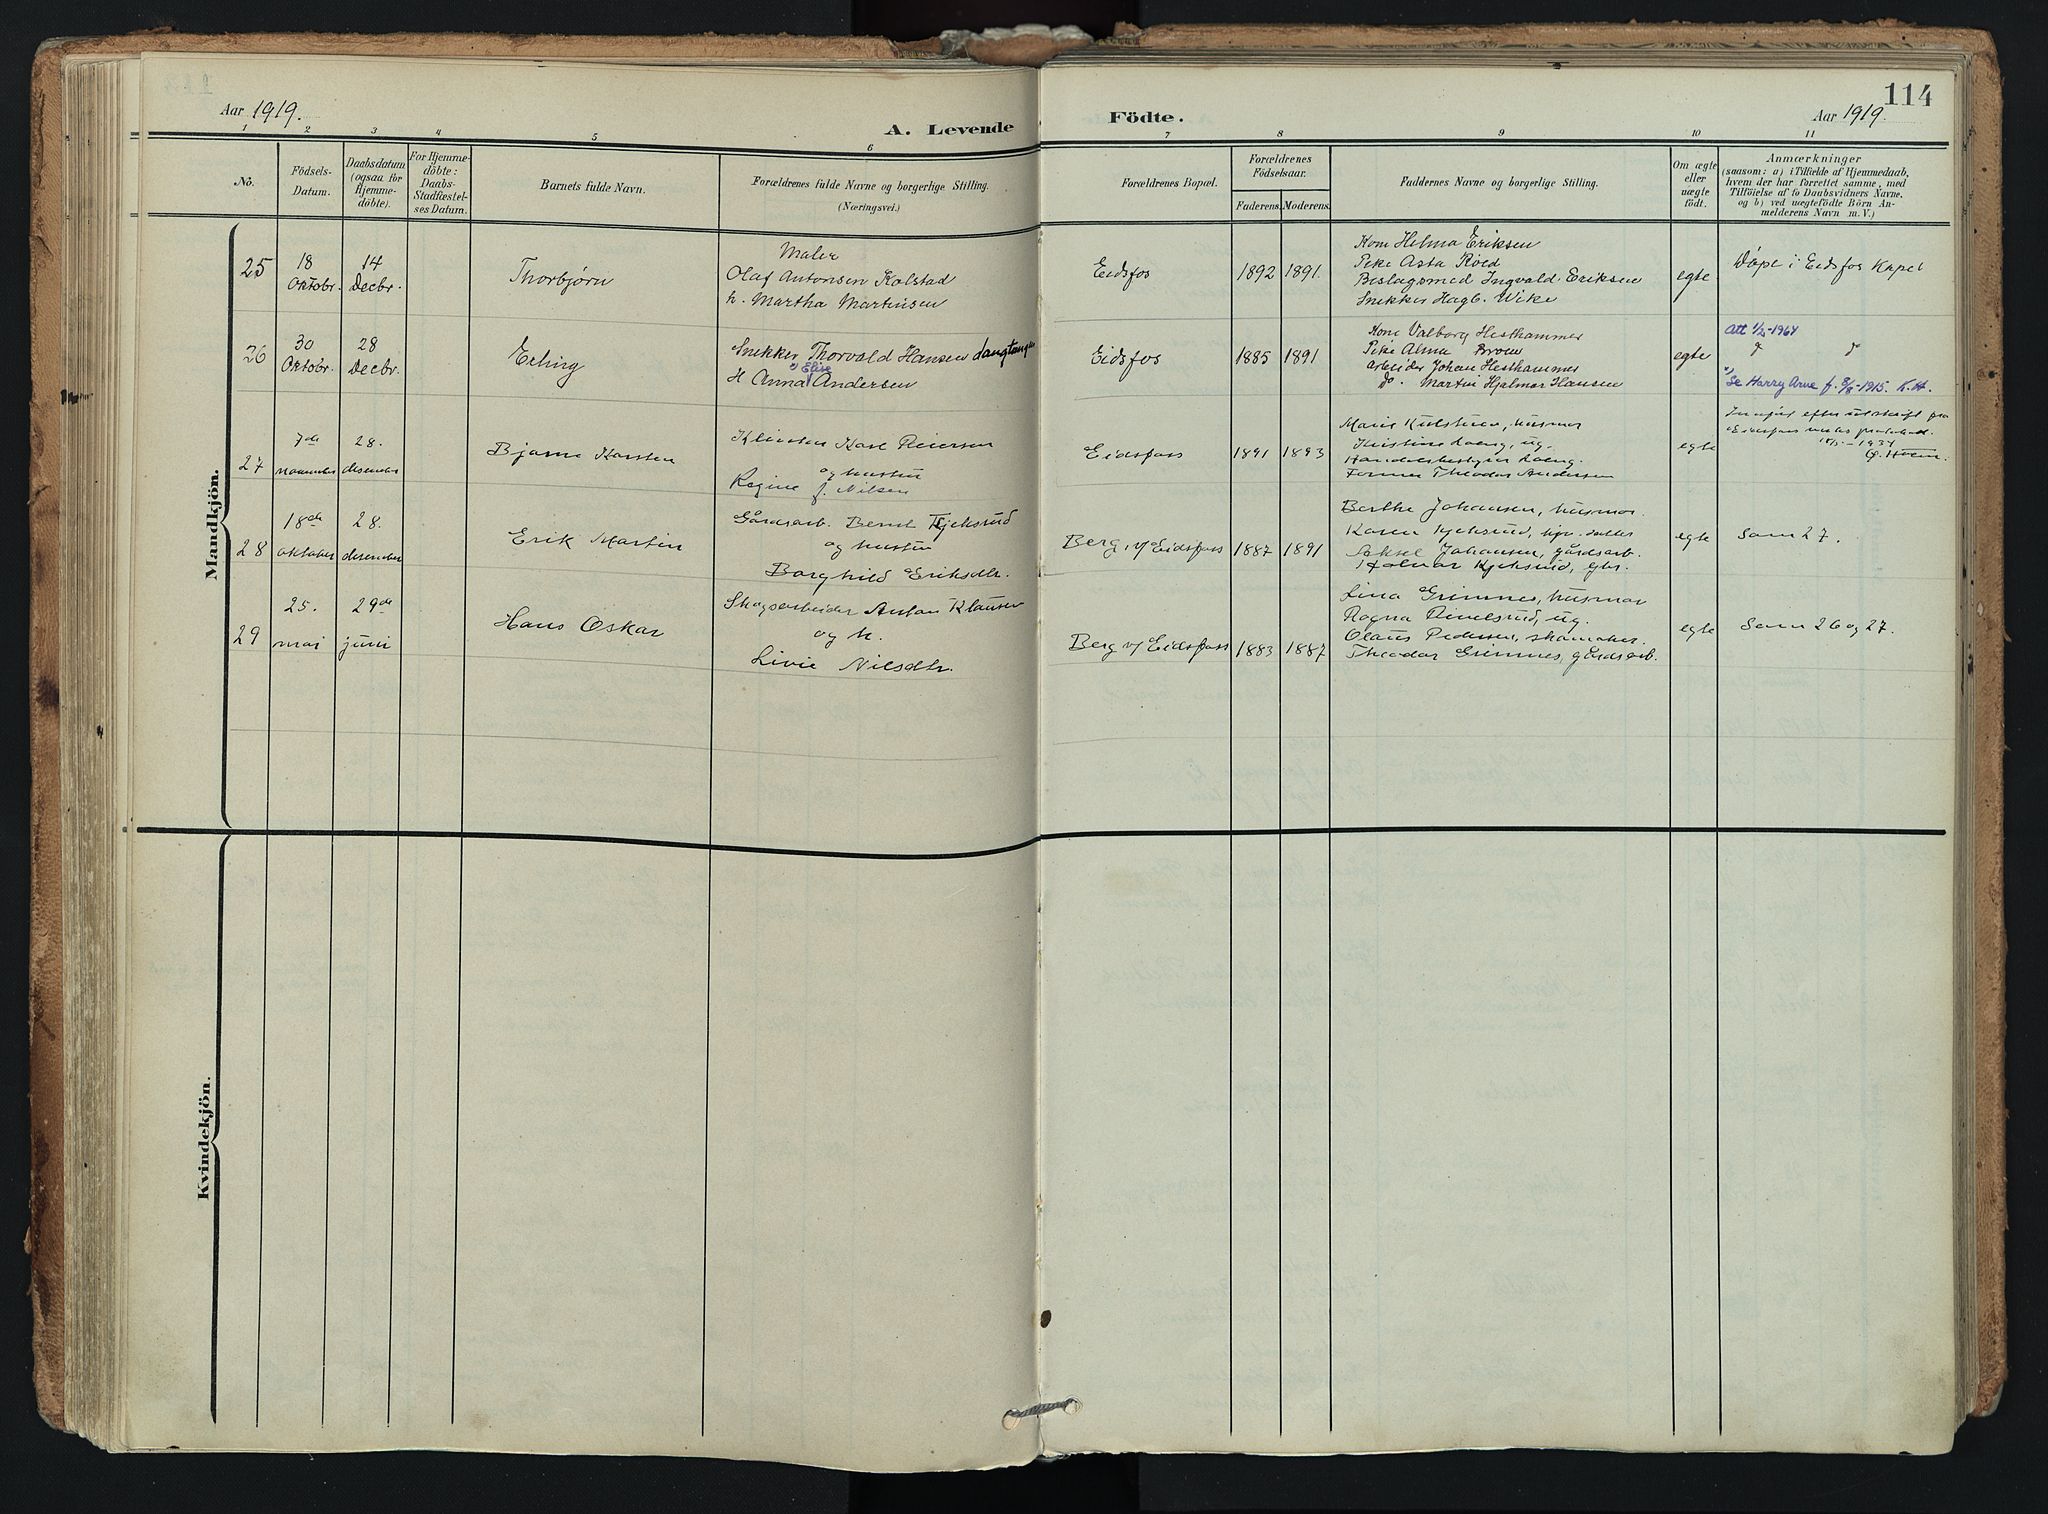 Aar 1919.
A. Levende
Födte.
Aar 1919.
114
1 2 3 4 5 6 7 8 9 10 11
No.
Födsels-
Datum.
Daabsdatum
(ogsaa for
Hjemme-
döbte).
For Hjemme-
döbte:
Daabs-
Stadfæstel-
ses Datum.
Barnets fulde Navn.
Forældrenes fulde Navne og borgerlige Stilling.
(Næringsvei.)
Forældrenes Bopæl.
Forældrenes
Födselsaar.
Faderens.
Moderens.
Faddernes Navne og borgerlige Stilling.
Om ægte
eller
uægte
födt.
Anmærkninger
(saasom: a) i Tilfælde af Hjemmedaab,
hvem der har forrettet samme, med
Tilföielse af to Daabsvidners Navne,
og b) ved uægtefödte Börn An-
melderens Navn m. V.)
Mandkjön.
25
18
Oktobr.
14
Decbr.
Thorbjørn
Maler
Olaf Antonsen Kolstad
h. Martha Martinsen
Eidsfos
1892
1891.
Kone Helma Eriksen
Pike Asta Roed
Beslagsmed Ingvald Eriksen
Snekker Hagb. Wike
egte
Døpt i Eidsfos Kapel
26
30
Oktobr.
28
Decbr.
Erling
Snekker Thorvald Hansen Langtangen
") Elise
H Anna Andersen
Eidsfos
1885
1891
Kone Valborg Hesthammer
Pike Alma
arbeider Johan Hesthammer
do. Martin Hjalmar Hansen
egte
Att 1/2-1964
") Se Harry Arve f. 8/8-1915. K.H.
27
7de
november
28.
desember
Bjarne Karsten
Karl Reiersen
og hustru
Regine f. Nilsen
Eidsfoss
1891
1893
Marie Kulstuen, husmor
Kristine Loeng, ug.
Handelsbestyrer Loeng.
Former Theodor Andersen
egte
Innført efter utskrift fra
Eidsfoss protokoll.
1934
28
18de
oktober
28.
desember
Erik Martin
Gårdsarb. Bernt Kjeksrud
og hustru
Borghild Eriksdtr.
Berg, v/ Eidsfoss
1887
1891
Berthe Johansen, husmor
Karen Kjeksrud,
Johansen, gårdsarb.
Hjalmar Kjeksrud, gbr.
egte
Som 27.
29
25.
mai
29de
juni
Hans Oskar
Skogsarbeider Anton Klausen
og h.
Livie Nilsdtr.
Berg v/ Eidsfoss
1883
1887
Lina Grimnes, husmor
Ragna , ug.
Olaus Pedersen, skomaker.
Theodor Grimnes, gårdsarb.
egte
Som 26 og 27.
Kvindekjön.